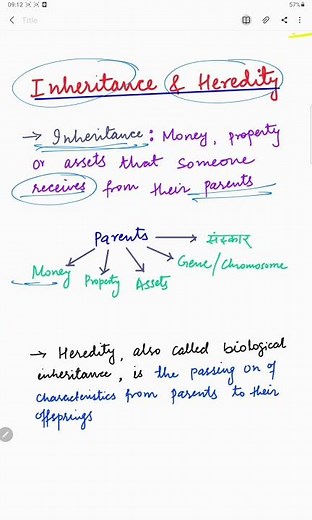 09:12
57%
Title
Inheritance & Heredity
→ Inheritance: Money, property
or assets that someone
receives from their parents
Parents → संस्कार
Gene/Chromosome
Money Property Assets
→ Heredity, also called biological
inheritance, is the passing on of
characteristics from parents to their
offsprings